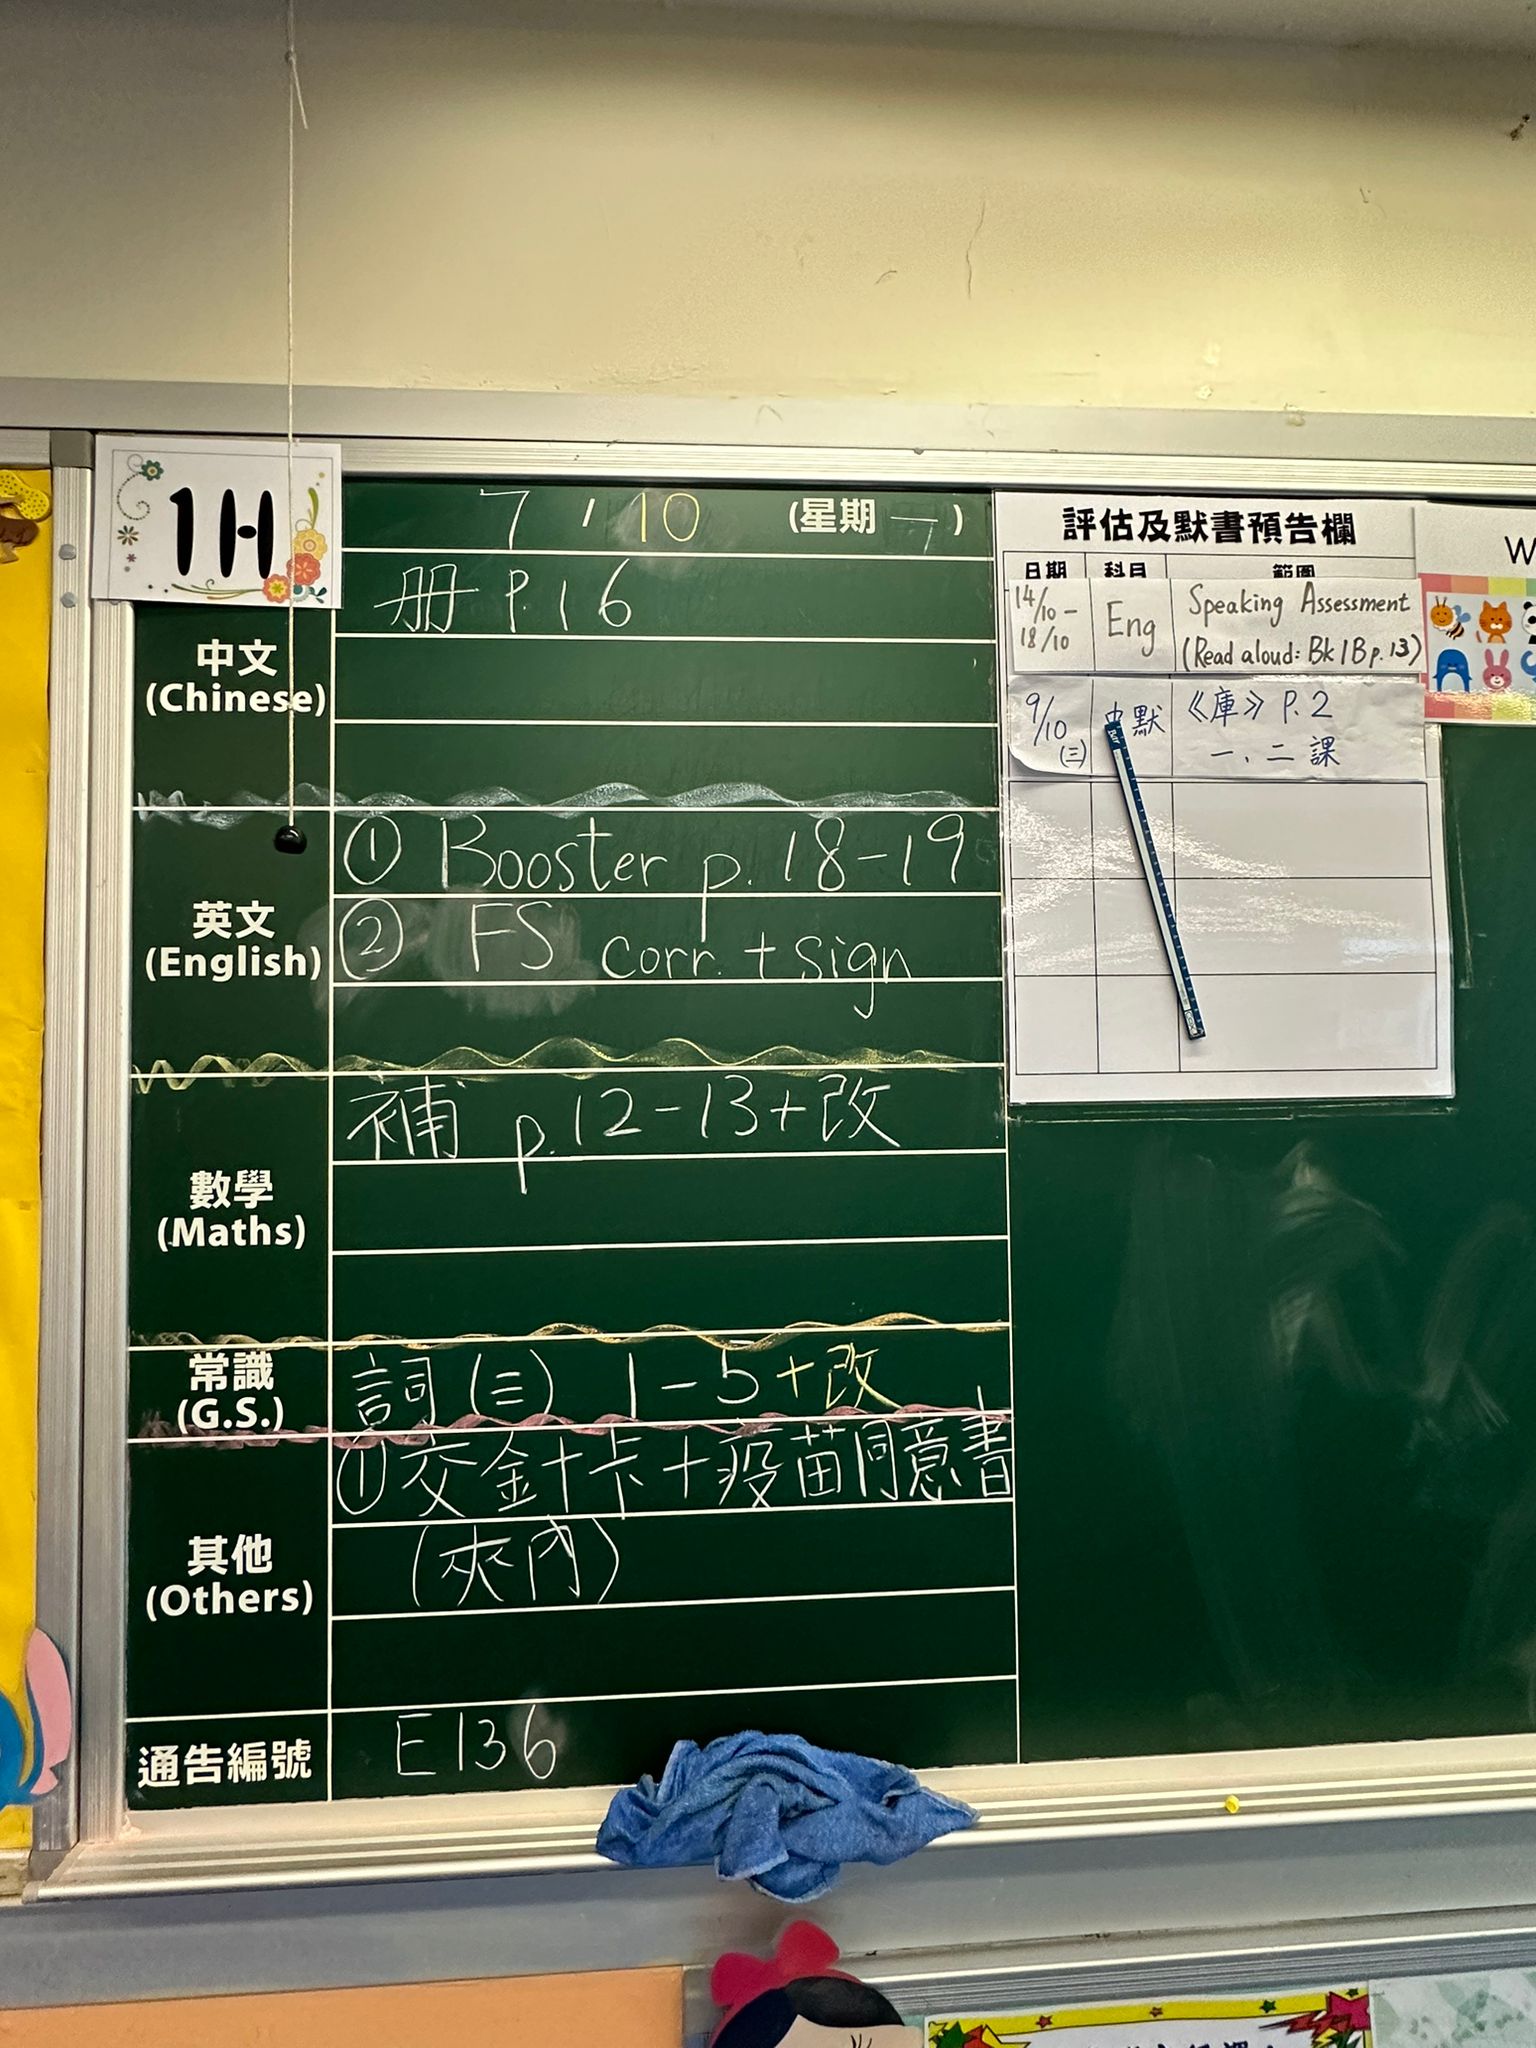 1H
7 / 10 (星期一)
中文
(Chinese)
冊 P.16
英文
(English)
① Booster p.18-19
② FS corr. + sign
數學
(Maths)
補 p.12-13+改
常識
(G.S.)
詞(三) 1-5+改
其他
(Others)
①交針卡+疫苗同意書
(夾內)
通告編號
E136
評估及默書預告欄
日期 科目 範圍
14/10 - 18/10 Eng Speaking Assessment
(Read aloud: Bk 1B p.13)
9/10 (三) 中默 《庫》 P.2
一、二課
W